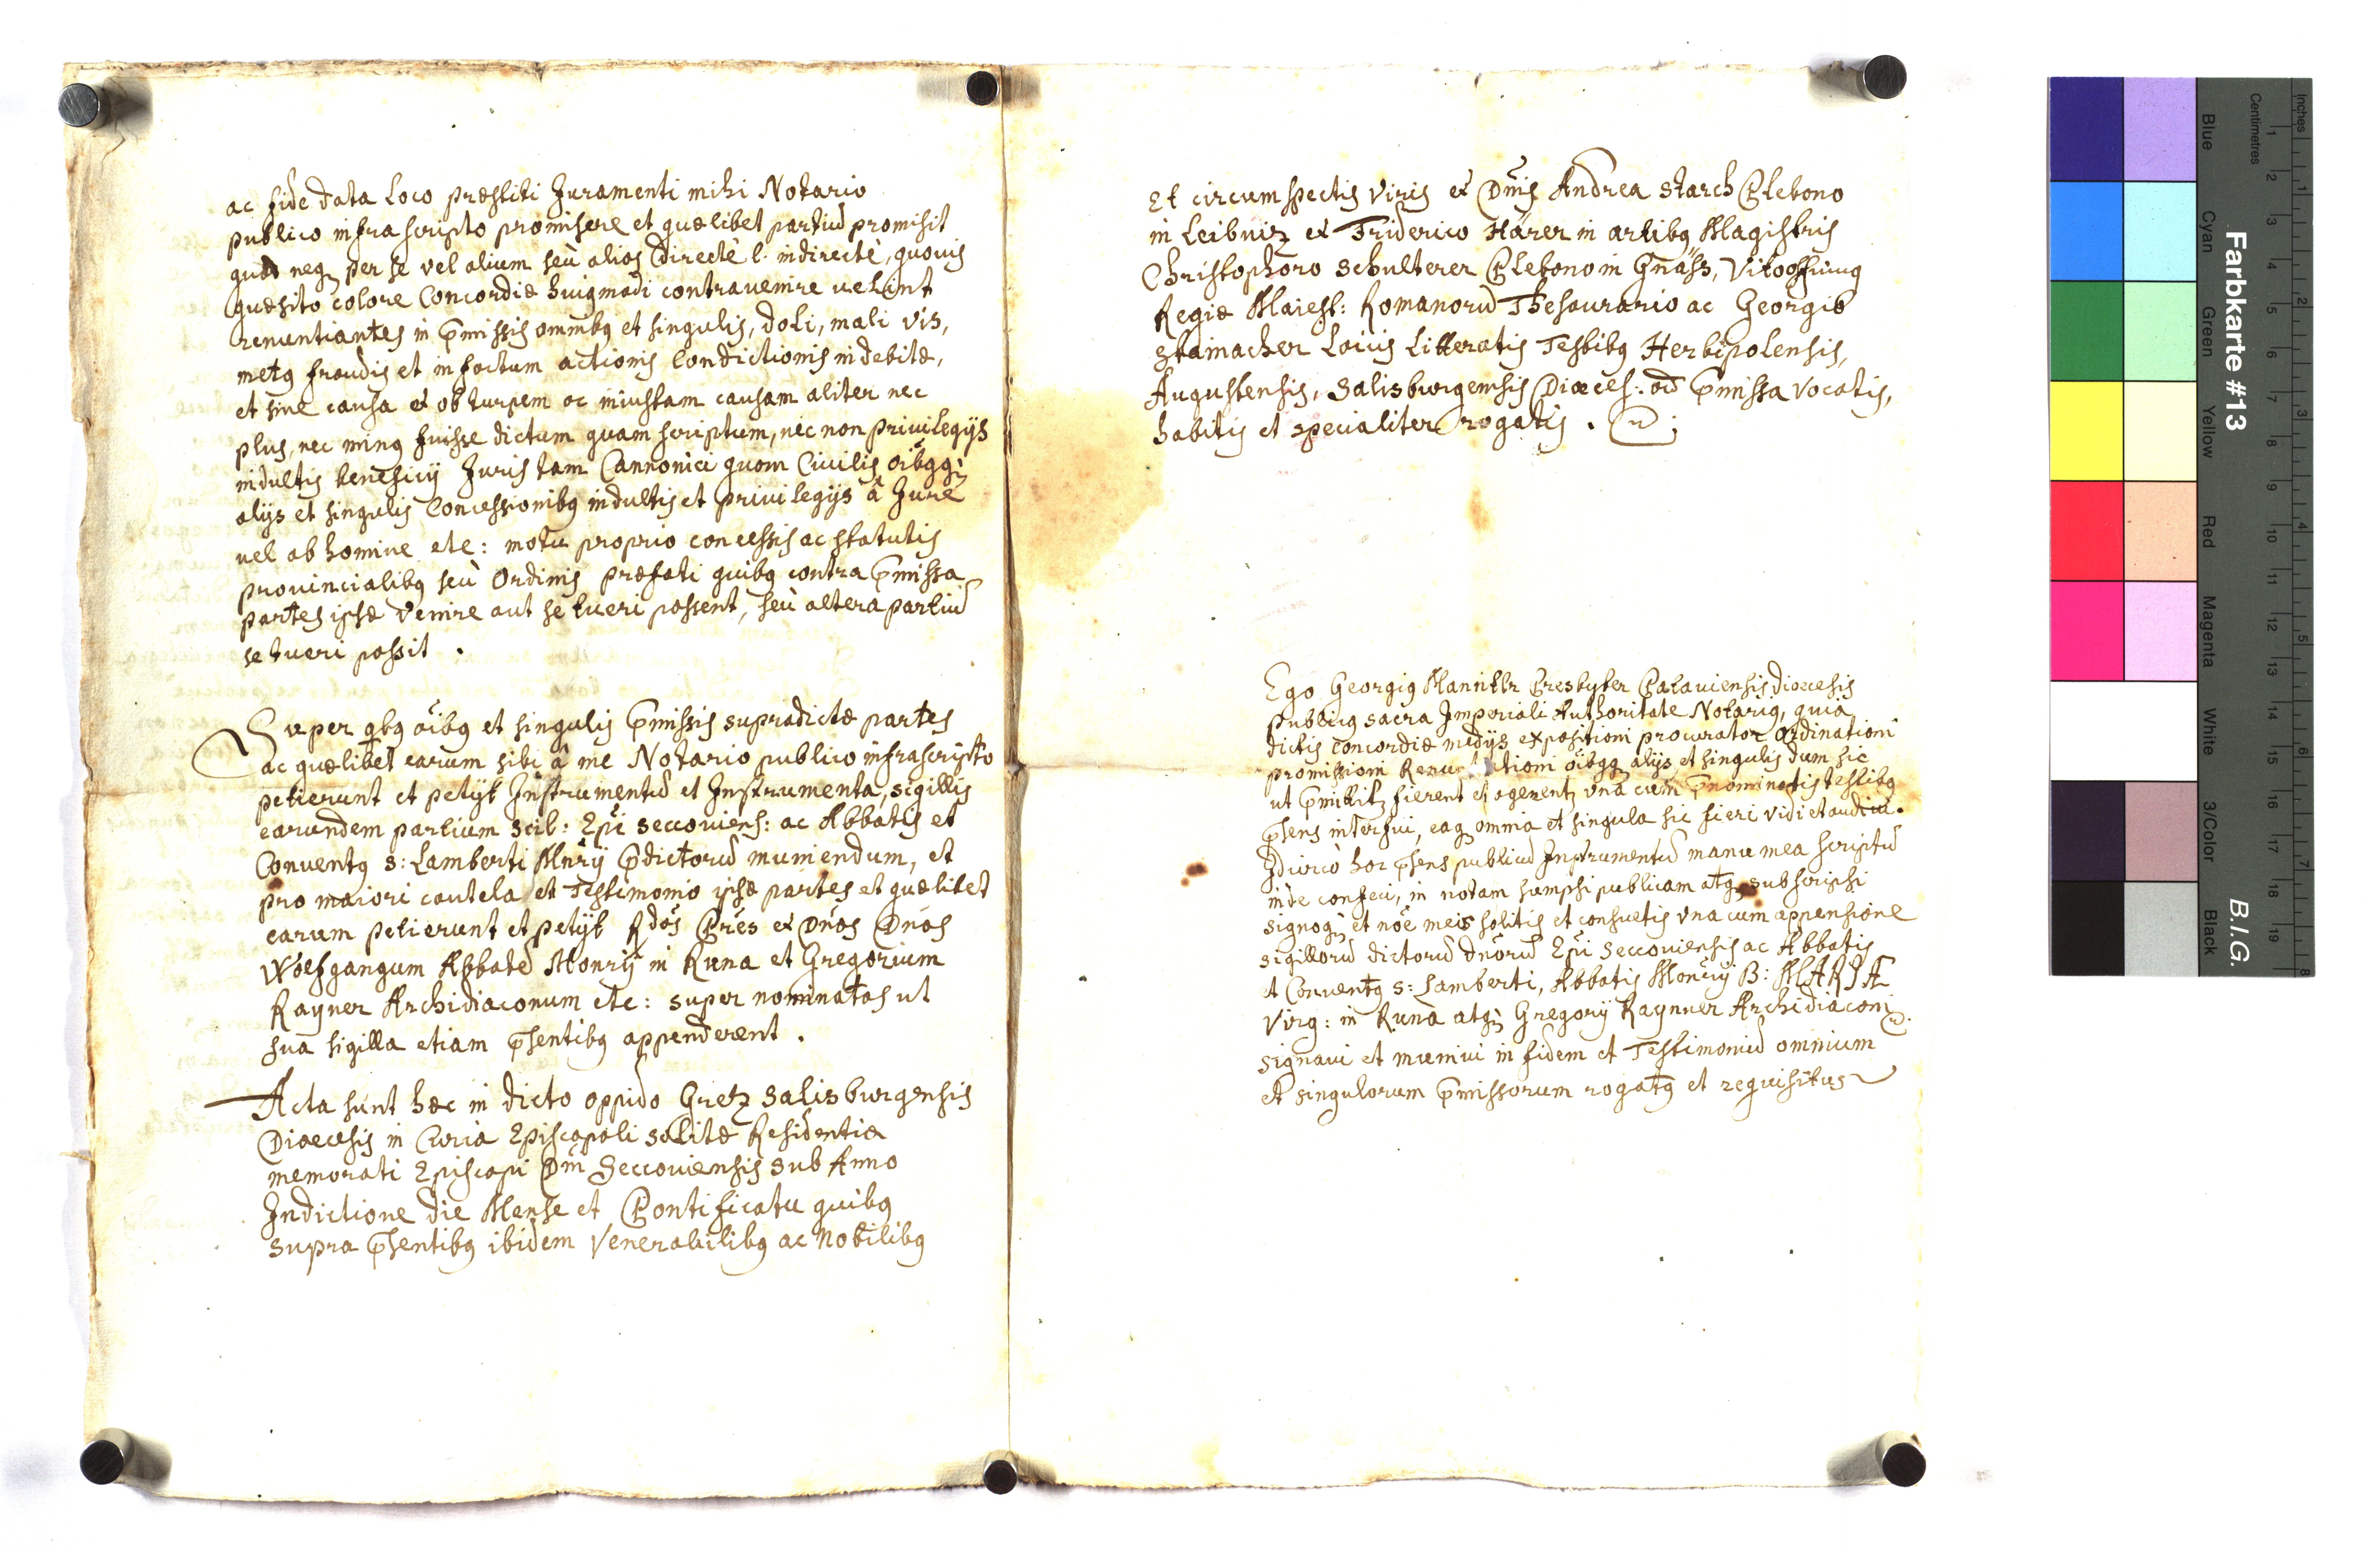 ac fide data loco præstiti Juramenti mihi Notario
publico infra scripto promisere et quælibet partiū promisit
quod neq₃ per se vel alium seù alios directè l. indirectè, quovis
quæsito colore Concordiæ huiq modi contrauenire uelint
renuntiantes in p̄missis omnibq et singulis, doli, mali vis,
metq fraudis et in factum actionis Condictionis indebitæ,
et sine causa et ob turpem ac iniustam causam aliter nec
plus, nec minq fuisse dictum quam scriptum, nec non privilegijs
indultis beneficij Juris tam Cannonici quam Ciuilis oībqq₃
alijs et singulis Concessionibq indultis et privilegijs â Jure
uel ab homine etc: motu proprio concessis ac statutis
provincialibq seù Ordinis præfati quibq contra p̄missa
partes ipsæ venire aut se tueri possent, seù altera partiū
se tueri possit .
Super qbq oībq et singulis p̄missis supradictæ partes
ac quælibet earum sibi â me Notario publico infrascripto
petierunt et petijt Instrumentū et Instrumenta, sigillis
earundem partium scil: Epī seccouiens: ac Abbatis et
Conventq s: Lamberti Mnrÿ p̄dictorū muniendum, et
pro maiori cautela et Testimonio ipsæ partes et quælibet
earum petierunt et petijt Rdos Pres et Dnos Dnos
Wolfgangum Abbatē Monrÿ in Runa et Gregorium
Rayner Archidiaconum etc: super nominatos ut
sua sigilla etiam p̄sentibq appenderent .
Acta sunt hæc in dicto oppido Gretz salisburgensis
Diœcesis in Curia Episcopali solitæ Residentiæ
memorati Episcopi Dnī Seccouiensis sub Anno
Indictione die Mense et Pontificatu quibq
supra p̄sentibq ibidem Venerabilibq ac Nobilibq
Et circumspectis viris et Dnīs Andrea starch Plebono
in Leibniz et Friderico Härer in artibq Magistris
Christophoro schulterer Plebono in Gnäss,
Regiæ Maiest: Romanorū Thesaurario ac Georgio
stainacher Laicis Litteratis Testibq Herbipolensis,
Augustensis, Salisburgensis Diœces: ad p̄missa vocatis,
habitis et specialiter rogatis .
Ego Georgiq Presbyter Patauiensis diocesis
publicq sacra Imperiali Authoritate Notariq, quia
dictis concordiæ medijs expositioni procurator ordinationi
promissioni oībqq₃ alijs et singulis dum sic
ut p̄mittitr fierent et agerentr vna cum p̄nominatis testibq
p̄sens interfui, eaq₃ omnia et singula sic fieri vidi et audiui.
Idcirco hoc p̄sens publicū Instrumentū manu mea scriptū
inde confeci, in notam sumpsi publicam atq₃ subscripsi
signoq₃ et noē meis solitis et consuetis vna cum appensione
sigillorū dictorū dnorū Epī seccouiensis ac Abbatis
et Conventq s: Lamberti, Abbatis Monrÿ B: MARIÆ
Virg: in Runa atq₃ Gregorij Raynner Archidiaconi
signavi et muniui in fidem et Testimoniū omnium
et singulorum p̄missorum rogatq et requisitus
Farbkarte #13
B.I.G.
Inches
Centimetres
Blue
Cyan
Green
Yellow
Red
Magenta
White
3/Color
Black
1 2 3 4 5 6 7 8 9 10 11 12 13 14 15 16 17 18 19
1 2 3 4 5 6 7 8